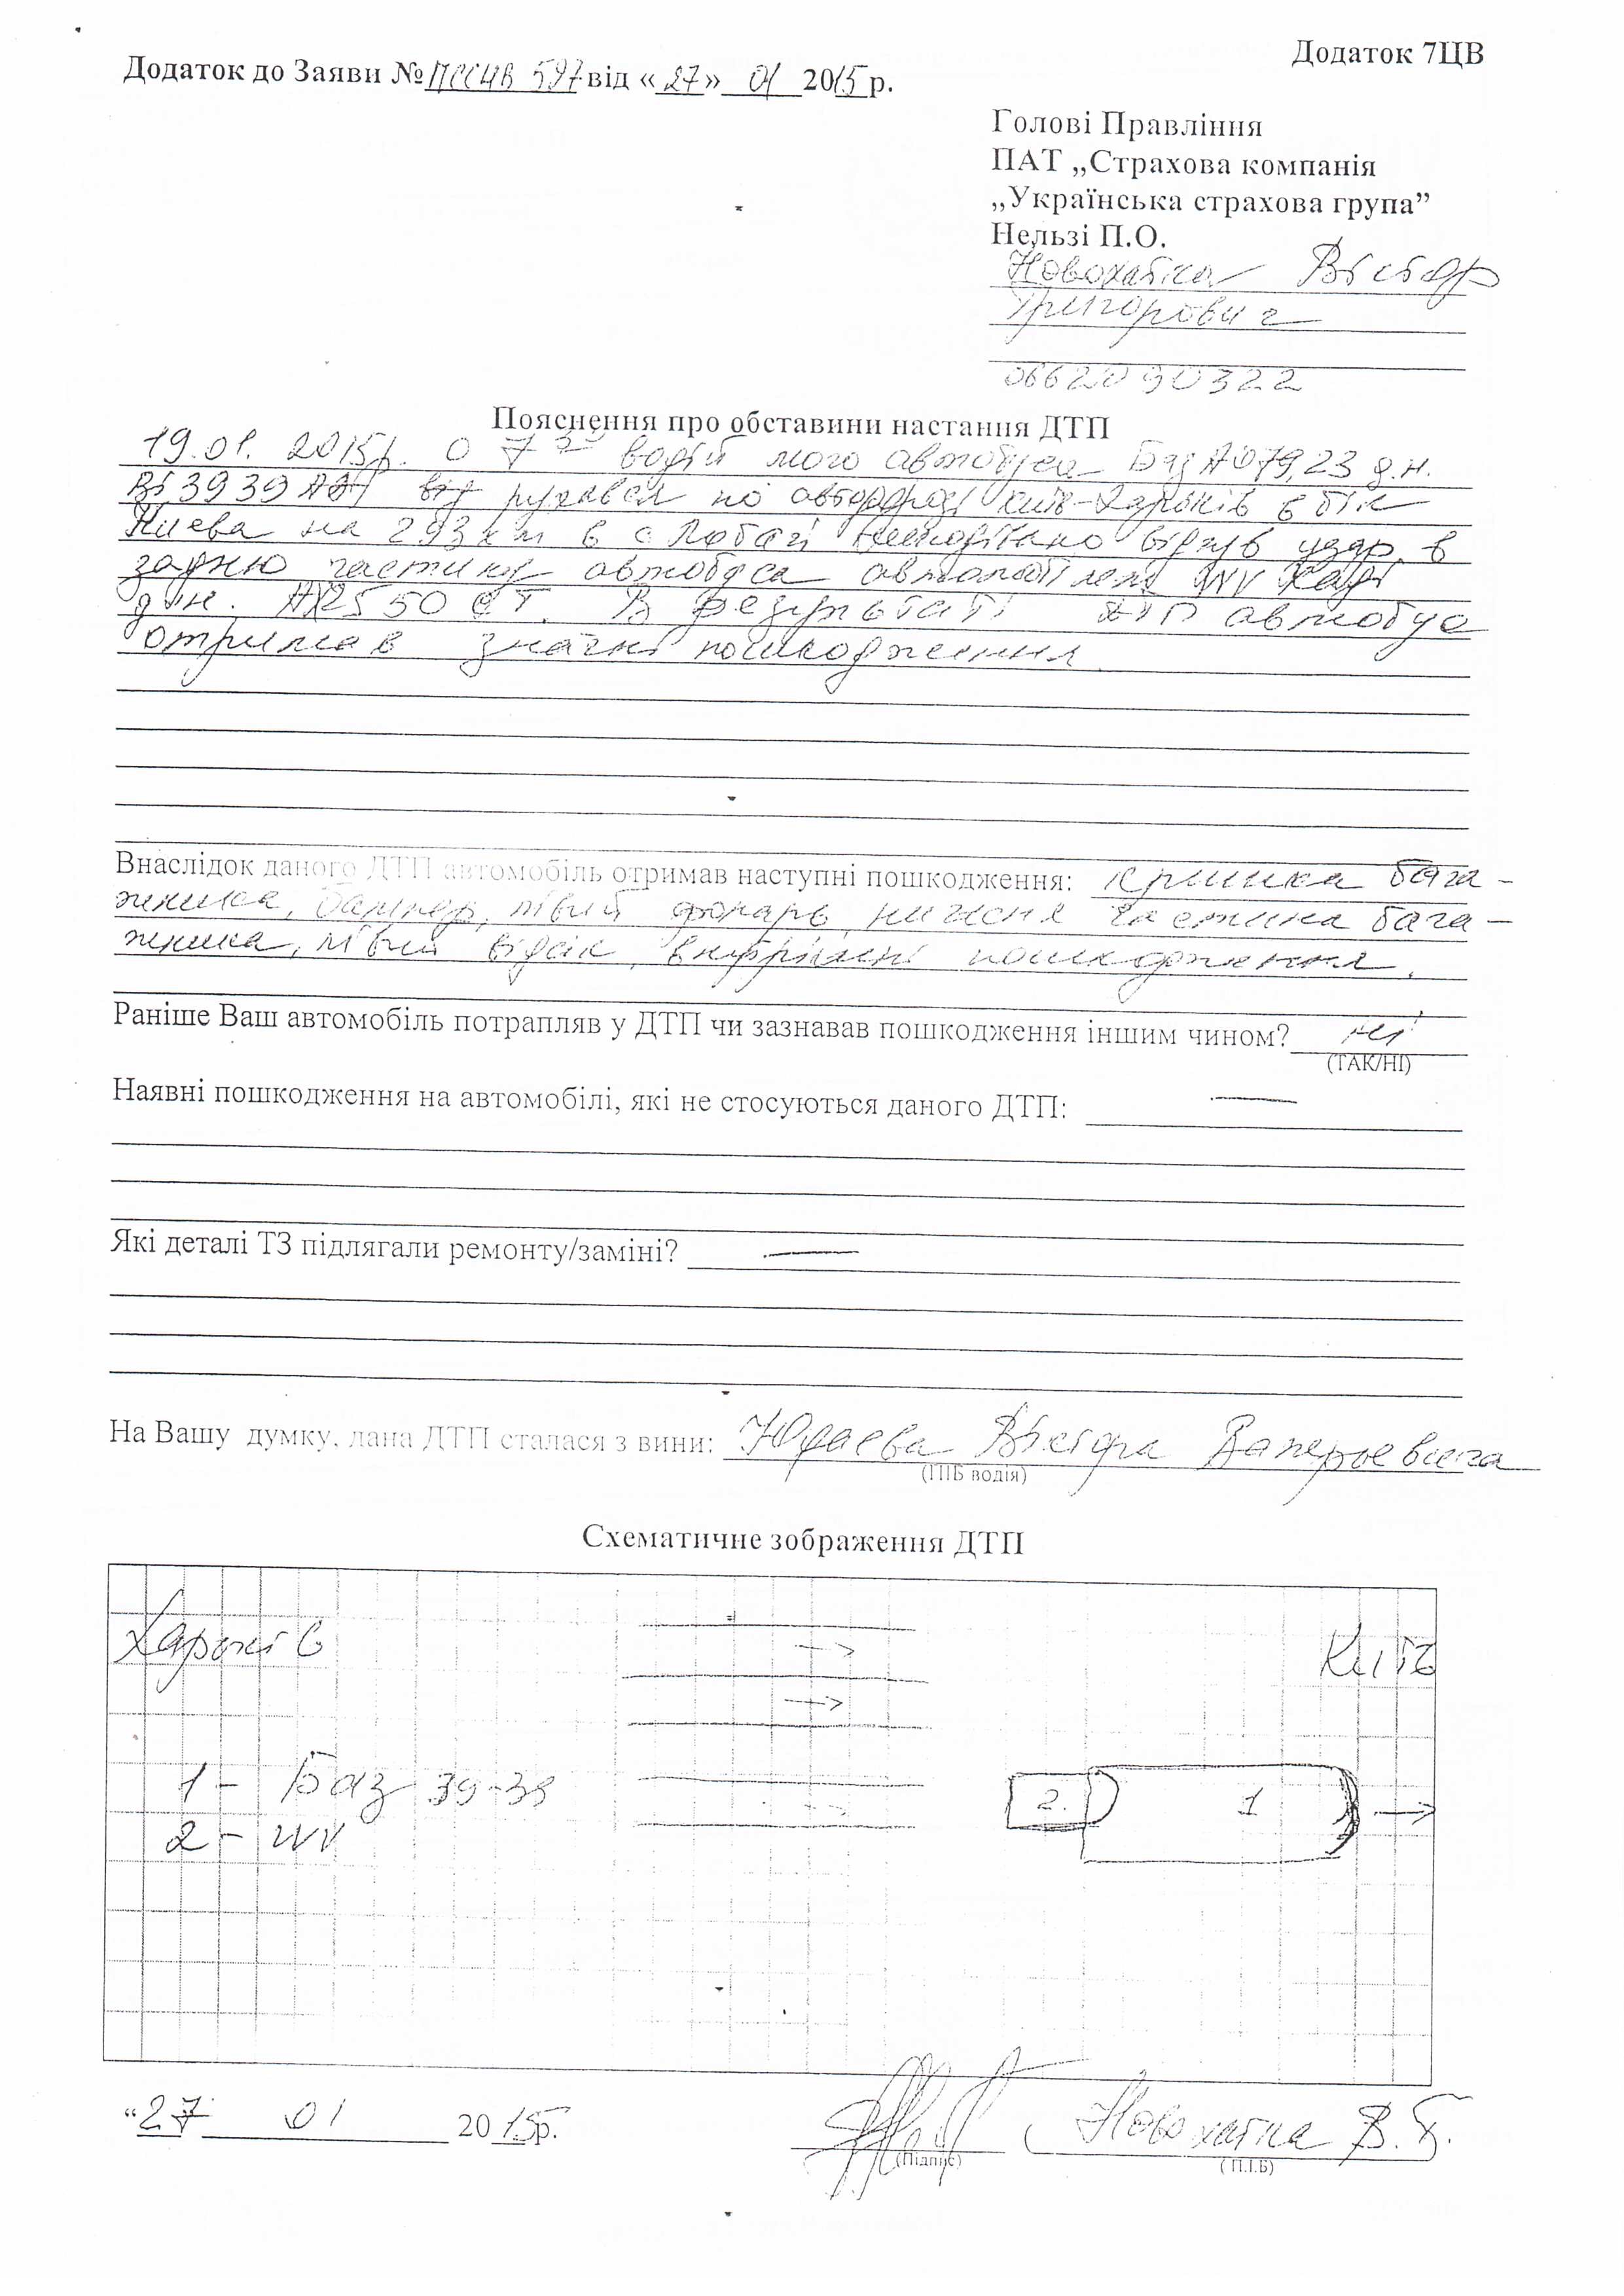 Додаток 7ЦВ
Додаток до Заяви № ПССЦВ 597 від «27» 01 2015 р.
Голові Правління
ПАТ „Страхова компанія
„Українська страхова група”
Нельзі П.О.
Новохатка Віктор
Григорович
0662090322
Пояснення про обставини настання ДТП
19.01. 2015р. о 7 30 водій мого автобуса Баз А079,23 д.н.
ВІ3939 рухався по автодорозі Київ-Харків в бік
Києва на 293 км в с неочікувано відчув удар в
задню частину автобуса автомобілем WV Кадді
д.н. АХ2550СТ. В результаті ДТП автобус
отримав значні пошкодження.
Внаслідок даного ДТП автомобіль отримав наступні пошкодження: кришка бага-
жника, бампер, лівий фонарь, нижня частина бага-
жника, лівий відсік, внутрішні пошкодження.
Раніше Ваш автомобіль потрапляв у ДТП чи зазнавав пошкодження іншим чином? ні
(ТАК/НІ)
Наявні пошкодження на автомобілі, які не стосуються даного ДТП: —
Які деталі ТЗ підлягали ремонту/заміні? —
На Вашу думку, дана ДТП сталася з вини: Віктора Валерьевича
(ПІБ водія)
Схематичне зображення ДТП
Харків Київ
1 - Баз 39-39 2. 1
2 - WV
“27 01 2015р. Новохатка В.Г.
(Підпис) (П.І.Б)